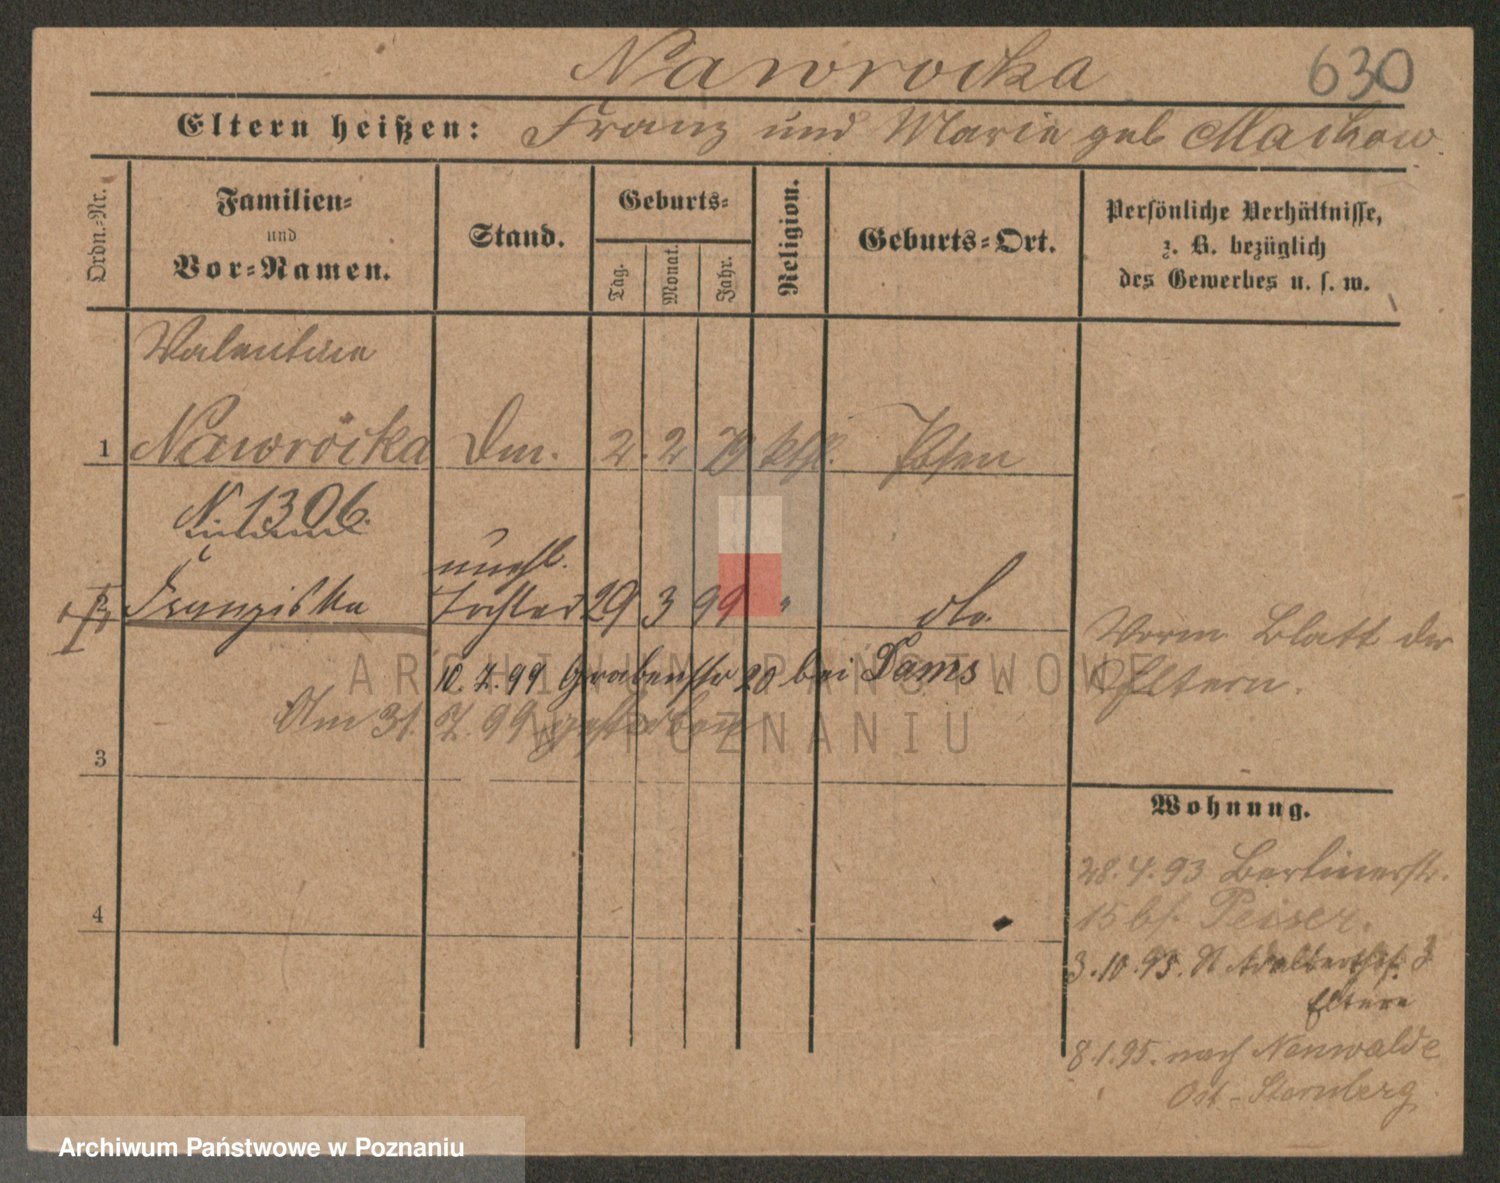 Nawrocka 630
Eltern heißen: Franz und Marie geb
Ordn.-Nr.
Familien-
und
Vor-Namen.
Stand.
Geburts-
Tag.
Monat.
Jahr.
Religion.
Geburts-Ort.
Persönliche Verhältnisse,
z. B. bezüglich
des Gewerbes u. s. w.
Valentine
1 Nawrocka 2. 2 79 kth. Posen
N. 1306.
unehl.
Franziska Tochter 29 3 99 " do.
Vorm. Blatt der
Eltern.
10. 7. 99 Grabenstr 20 bei Dams
Am 31. 7. 99 gestorben
3
Wohnung.
28. 4. 93 Berlinerstr.
15 bei Peiser.
4
3. 10. 95. St Adalbertstr. 3
Eltern
8. 1. 95. nach Neuwalde
Ost-Sternberg
ARCHIWUM PAŃSTWOWE
W POZNANIU
Archiwum Państwowe w Poznaniu